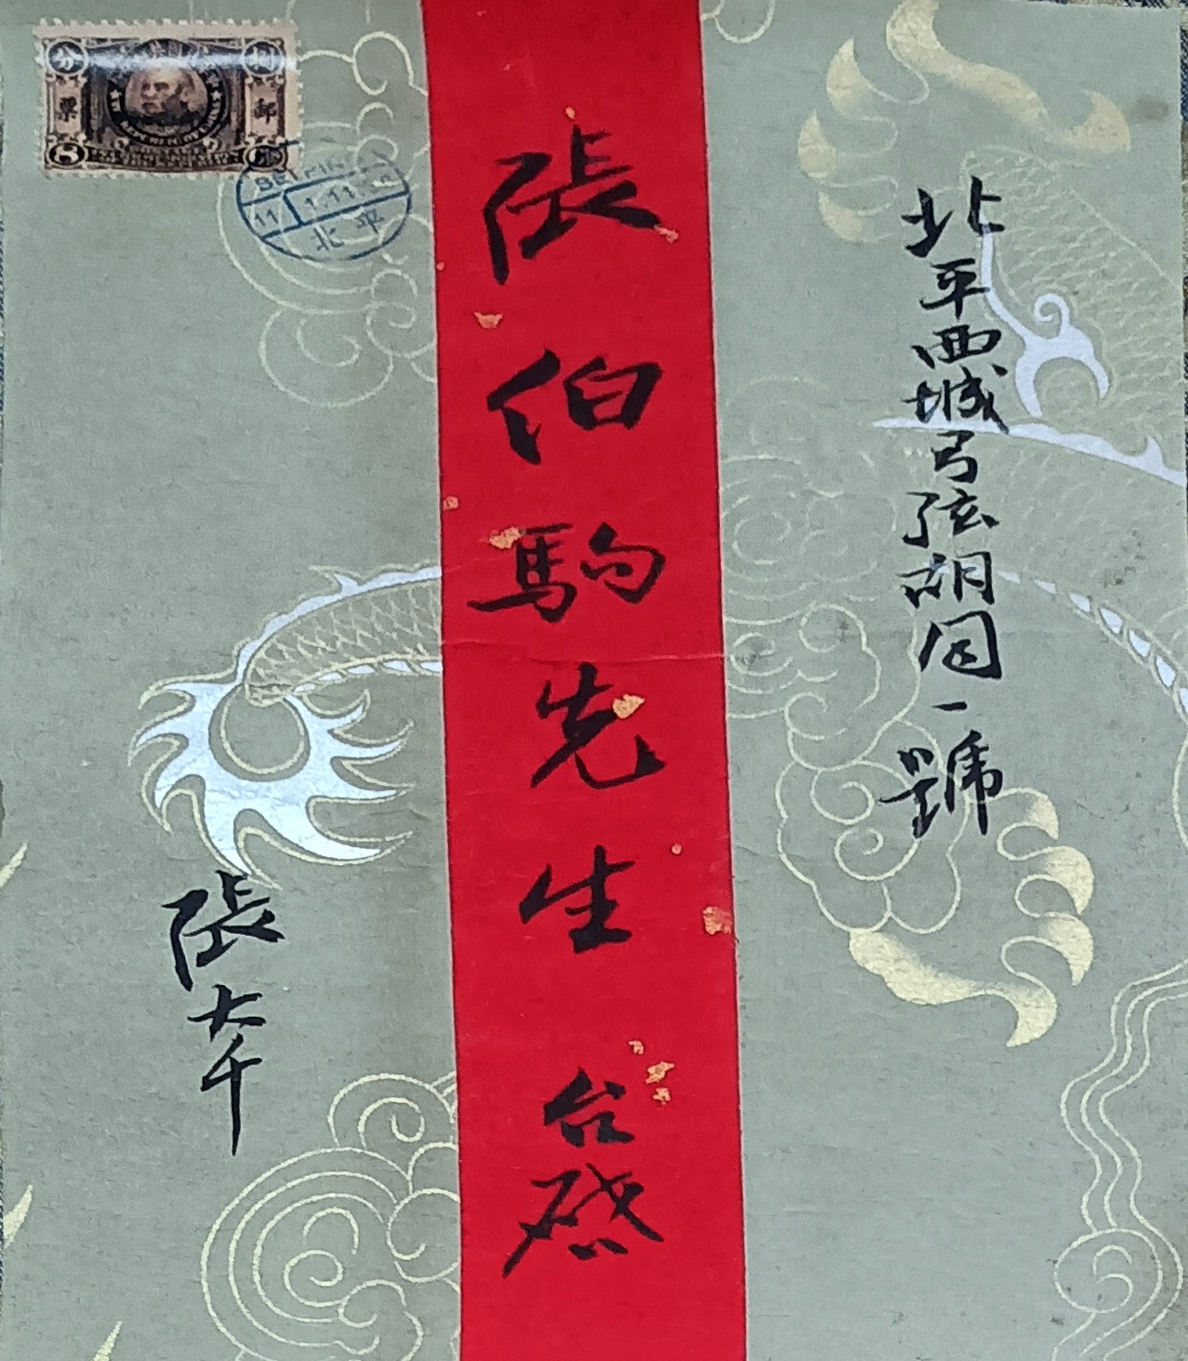 北平西城弓弦胡同一號
張伯駒先生 台啓
張大千
分 捌
票 郵
8
11 1.11
北平